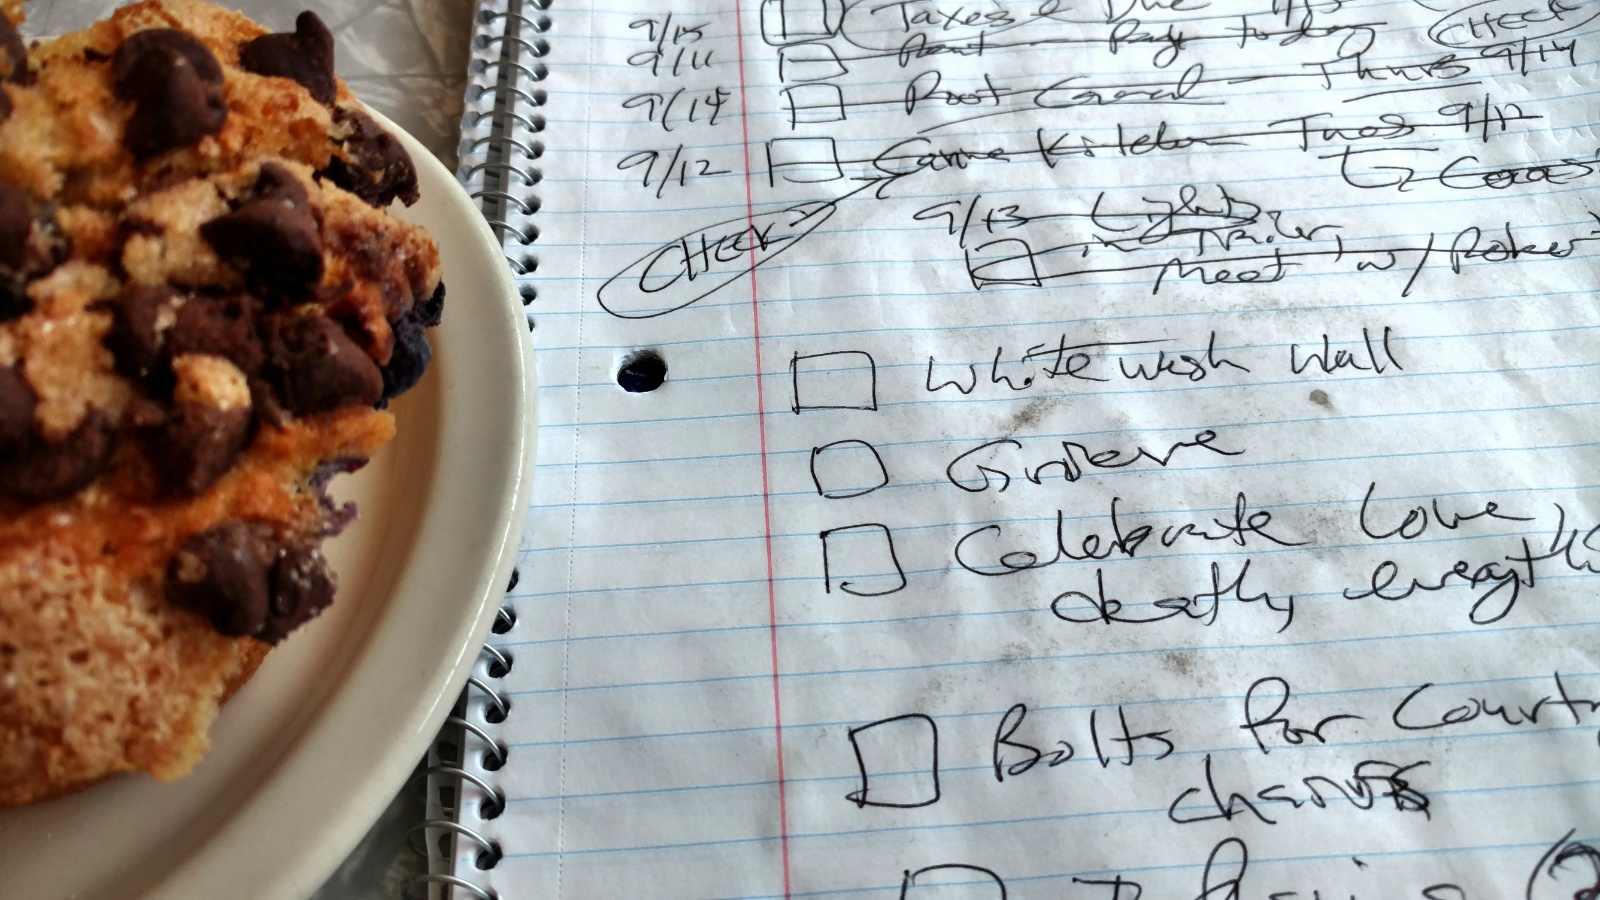 9/15 Taxes Due 9/15 CHECK
9/11 Rent - Pay today
9/14 Root Canal - Thurs 9/14
9/12 Kitchen Tues 9/12
CHECK
9/13 Lights
in Trailer,
Meet w/ Robert
Whitewash Wall
Grieve
Celebrate love,
death, everyth
Bolts for Courty
chairs